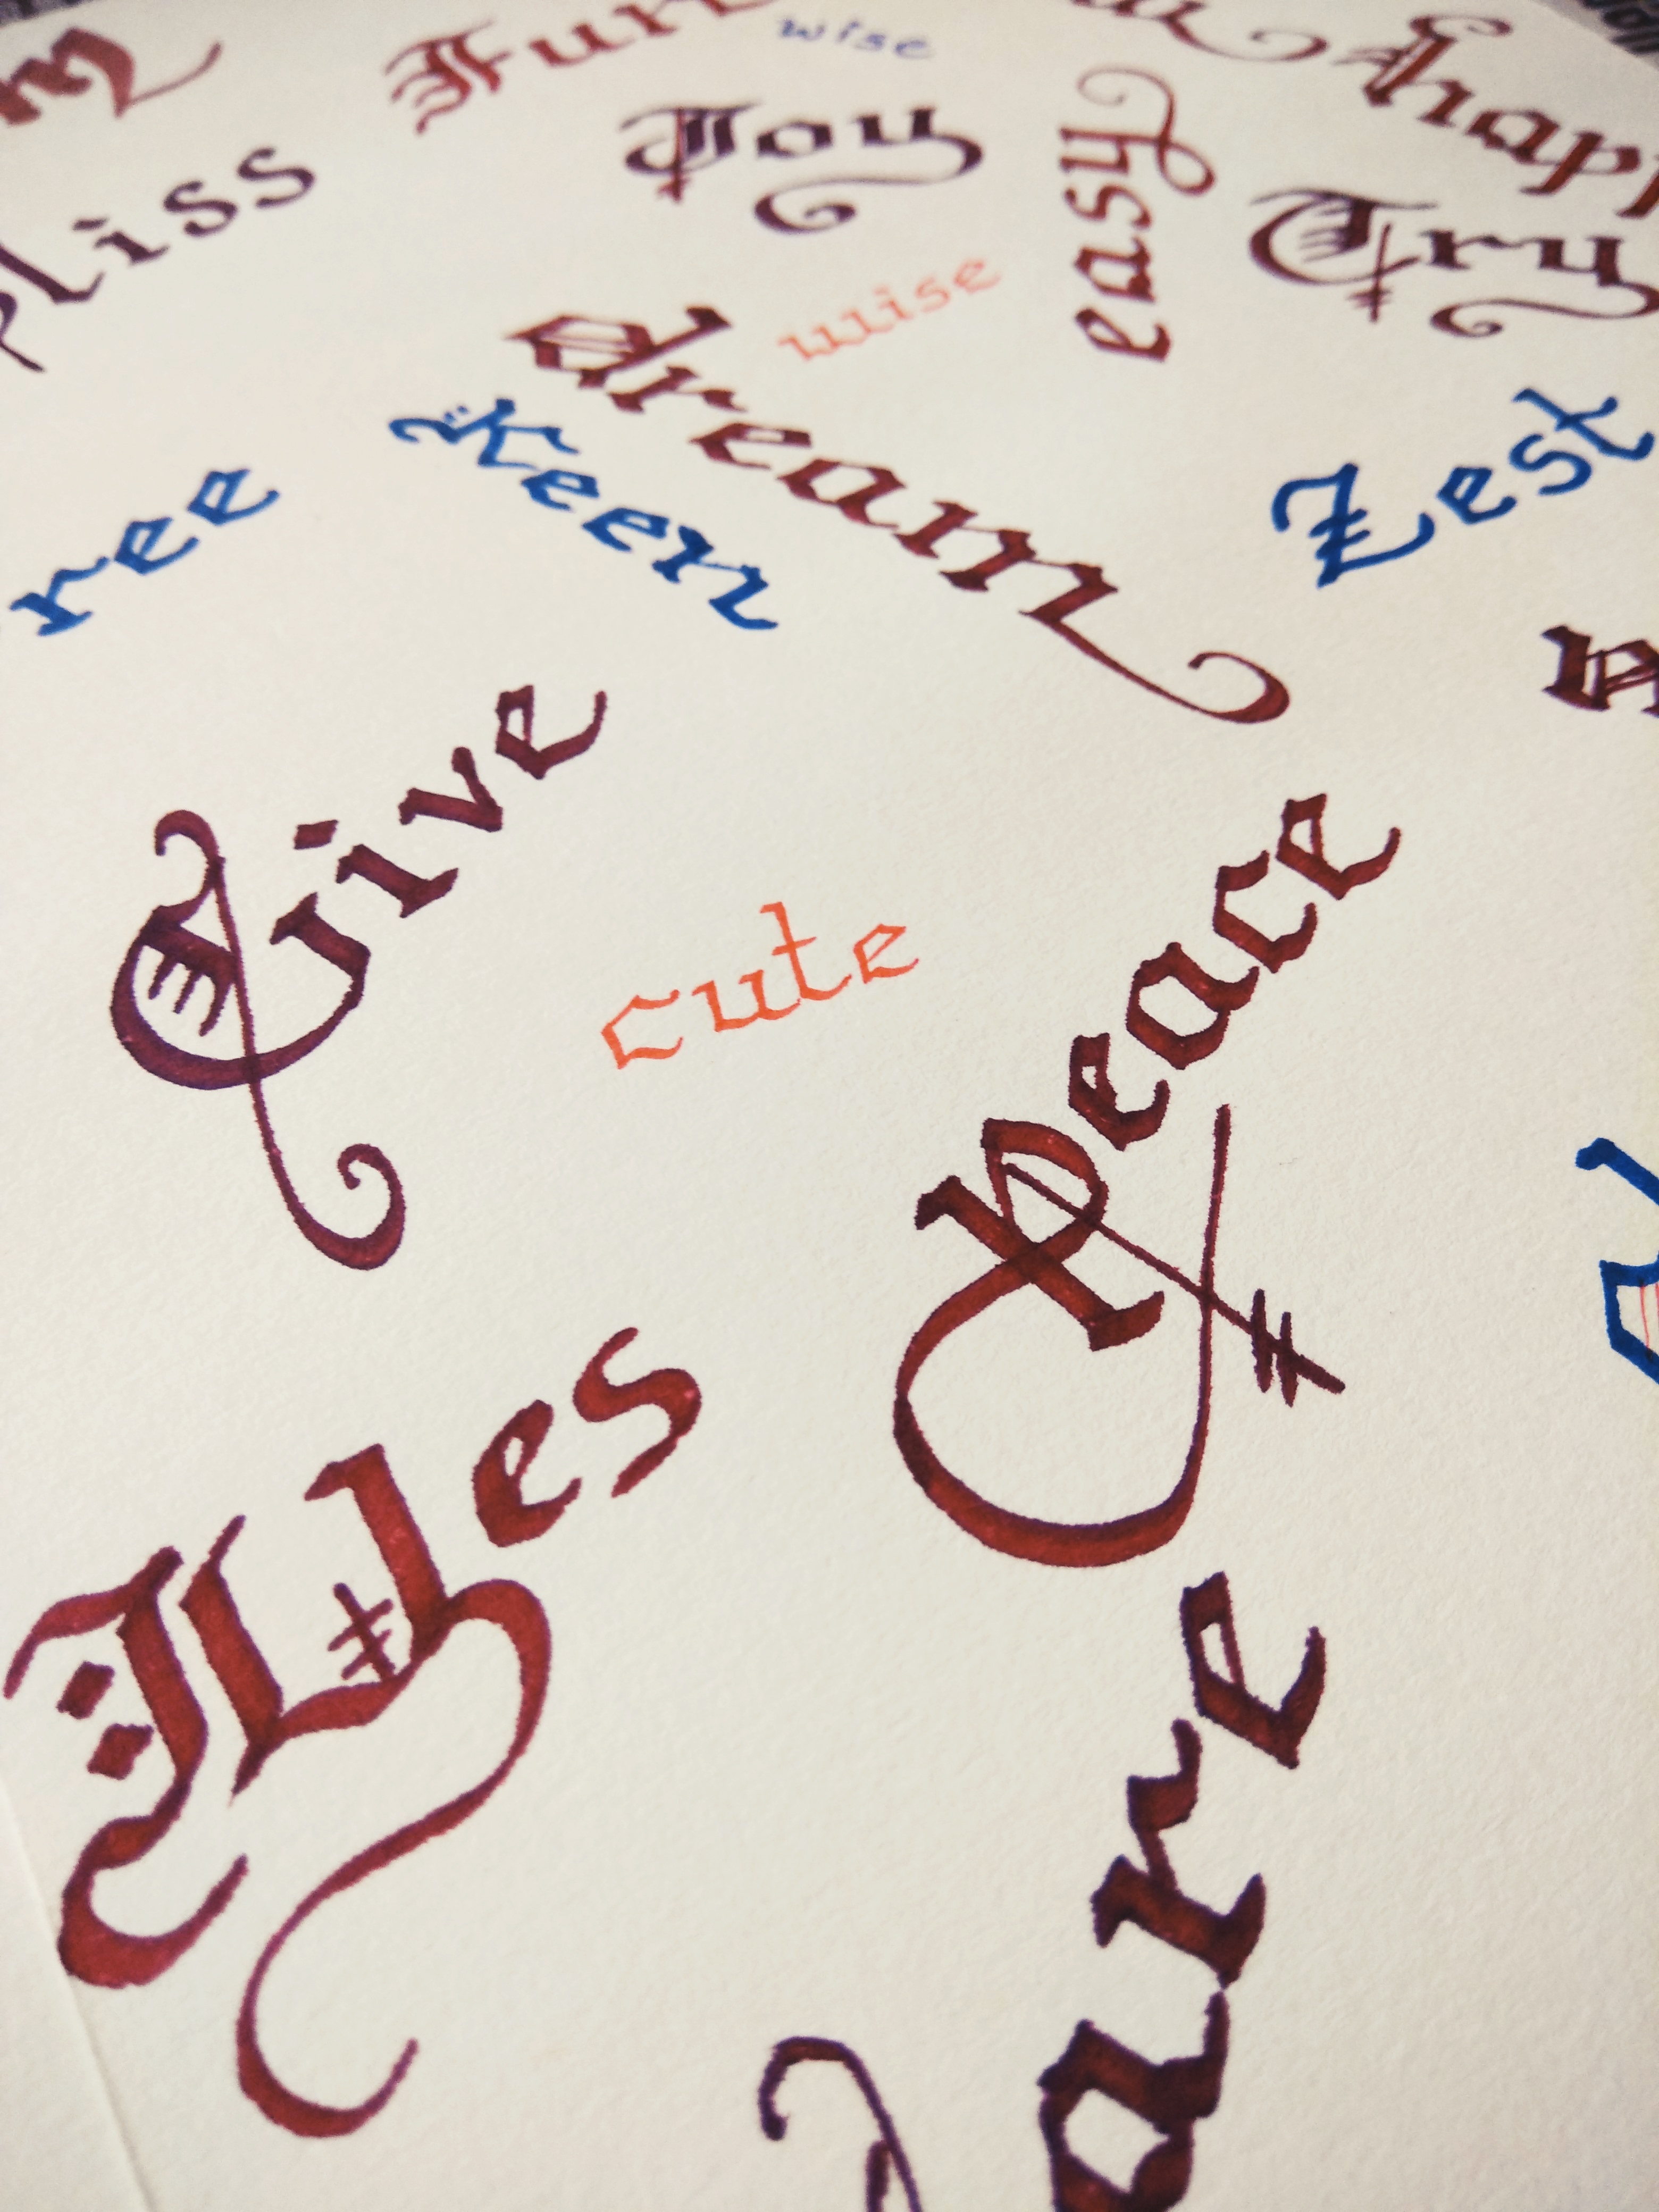 Fun
wise
Joy
easy
happ
Try
bliss
wise
dream
Keen
ree
Zest
Give
cute
peace
Yes
are